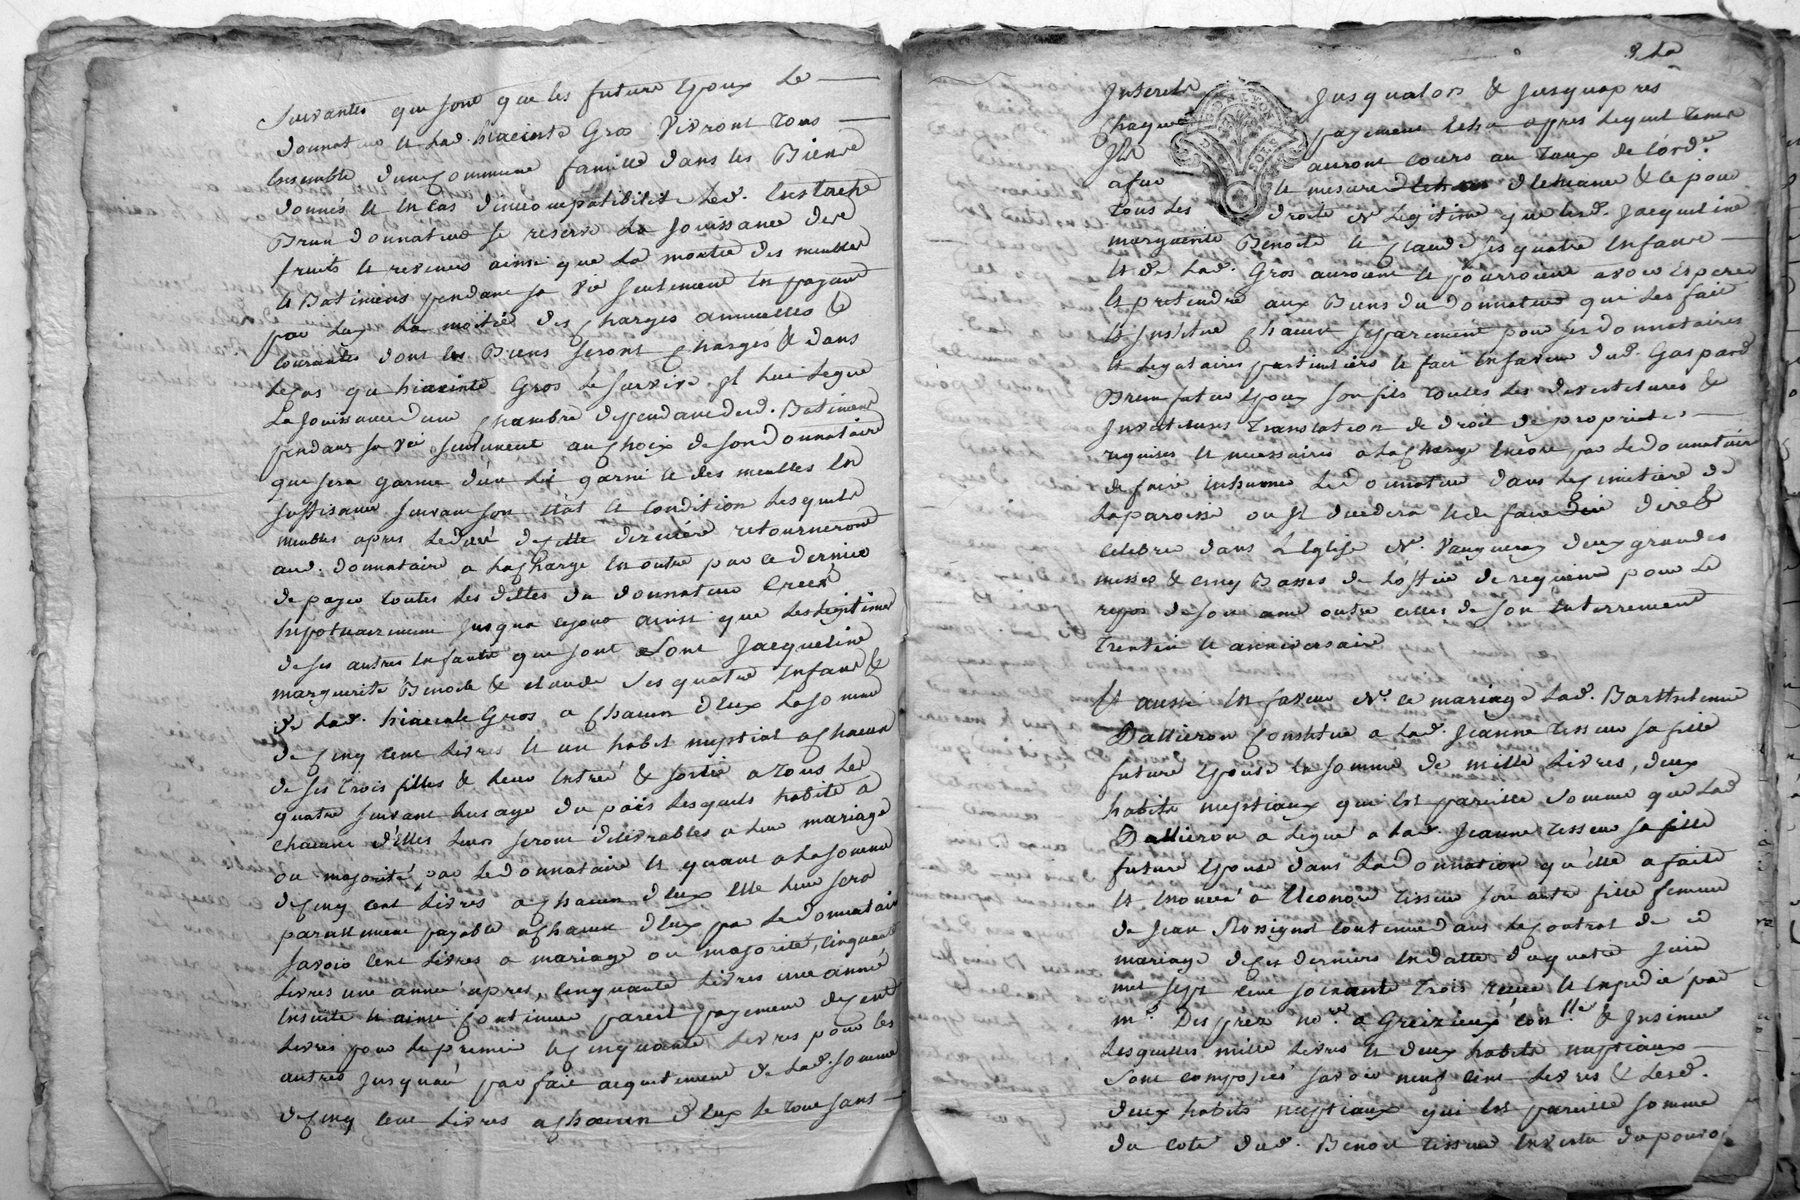 Suivantes qui sont que les future Epoux le
donnateur et lad. hiacinte Gros Vivront tous
Ensemble d'une commune famille dans les Biens
donnés et En cas d'incompatibilité Led. Eustache
Brun donnateur se reserve La Jouissance des
fruits et revenus ainsi que La moitié des meubles
et Batimens pendant sa vie seulement En payant
par Lux La moitié des charges annuelles &
courantes dont les Biens seront chargés & dans
Le cas qu hiacinte Gros Le survive Il lui Legue
La Jouissance d'une chambre dependante desd. Batimens
pendant sa vie seulement au choix de son Donnataire
qui sera garnie d'un Lit garni et des meubles En
suffisance suivant son Etat et condition Lesquels
meubles apres Le decé de cette derniere retourneront
aud. donnataire a La charge En outre par ce dernier
de payer toutes Les dettes du donnateur Creés
hipotecairement jusqua cejour ainsi que Les Legitimes
de ses autres Enfants qui sont Jacqueline
marguerite Benoite & claude ses quatre Enfans &
de Lad. hiacinte Gros a chacun d'eux La somme
de cinq cent Livres et un habit nuptial a chacune
de ses trois filles & leur Entreé & sortie a tous Les
quatre suivant Lusage du païs Lesquels habits a
chacune d'Elles Leurs seront delivrables a leur mariage
ou majorité par Le donnataire et quant a La somme
de cinq cent Livres a chacun d'eux Elle leur sera
pareillement payable a chacun d'eux par Le donnataire
savoir cent Livres a mariage ou majorité, cinquante
Livres une année apres, cinquante Livres une année
Ensuite et ainsi continuer pareil payement de cent
Livres pour Le premier et cinquante Livres pour les
autres Jusquau parfait acquitement de Lad. somme
de cinq cent Livres a chacun d'eux Le tout sans
Interets Jusqualors & Jusquapres
chaque payement Echu apres Lequel tems
Ils auront cours au taux de l'ord.ce
a fur et mesure d'Echeance & ce pour
tous Les droits de Legitime que lesd. Jacqueline
marguerite Benoite et claude ses quatre Enfans
et de Lad. Gros auroient et pourroient avoir Esperer
et pretendre aux Biens du donnateur qui Les fait
et Institue chacun separement pour ses donnataires
et Legataires particuliers et fait En faveur dud. Gaspard
Brun futur Epoux son fils toutes Les devestitures &
Investitures translation de droit de proprieté
requises et necessaires a La charge Encore par Le donnataire
de faire Inhumer Led. donnateur dans Le cimetiere de
La paroisse ou Il decedera et de faire dire &
celebrer dans L'Eglise de Vaugneray deux grandes
messes & cinq Basses de L'office de requiem pour Le
repos de son ame outre celles de son Enterrement
trentin et anniversaire
Et aussi En faveur de ce mariage Lad. Barthelemie
Dallieron constitue a Lad. Jeanne tisseur sa fille
future Epouse La somme de mille Livres, deux
habits nuptiaux qui Est pareille somme que Lad.
Dallieron a Legué a Lad. Jeanne tisseur sa fille
future Epouse dans La donnation qu'elle a faite
Eleonore tisseur son autre fille femme
de Jean Rossignol contenue dans Le contrat de
mariage de ces derniers En datte juin
mil sept cent soixante trois receu et Expedié par
m.e Desprez no.re a Greizieux con.llé & Insinué
Lesquelles mille Livres et deux habits nuptiaux
sont composés savoir neuf cent Livres & Lesd.
deux habits nuptiaux qui Est pareille somme
du coté dud. Benoit tisseur En vertu du pouvoir